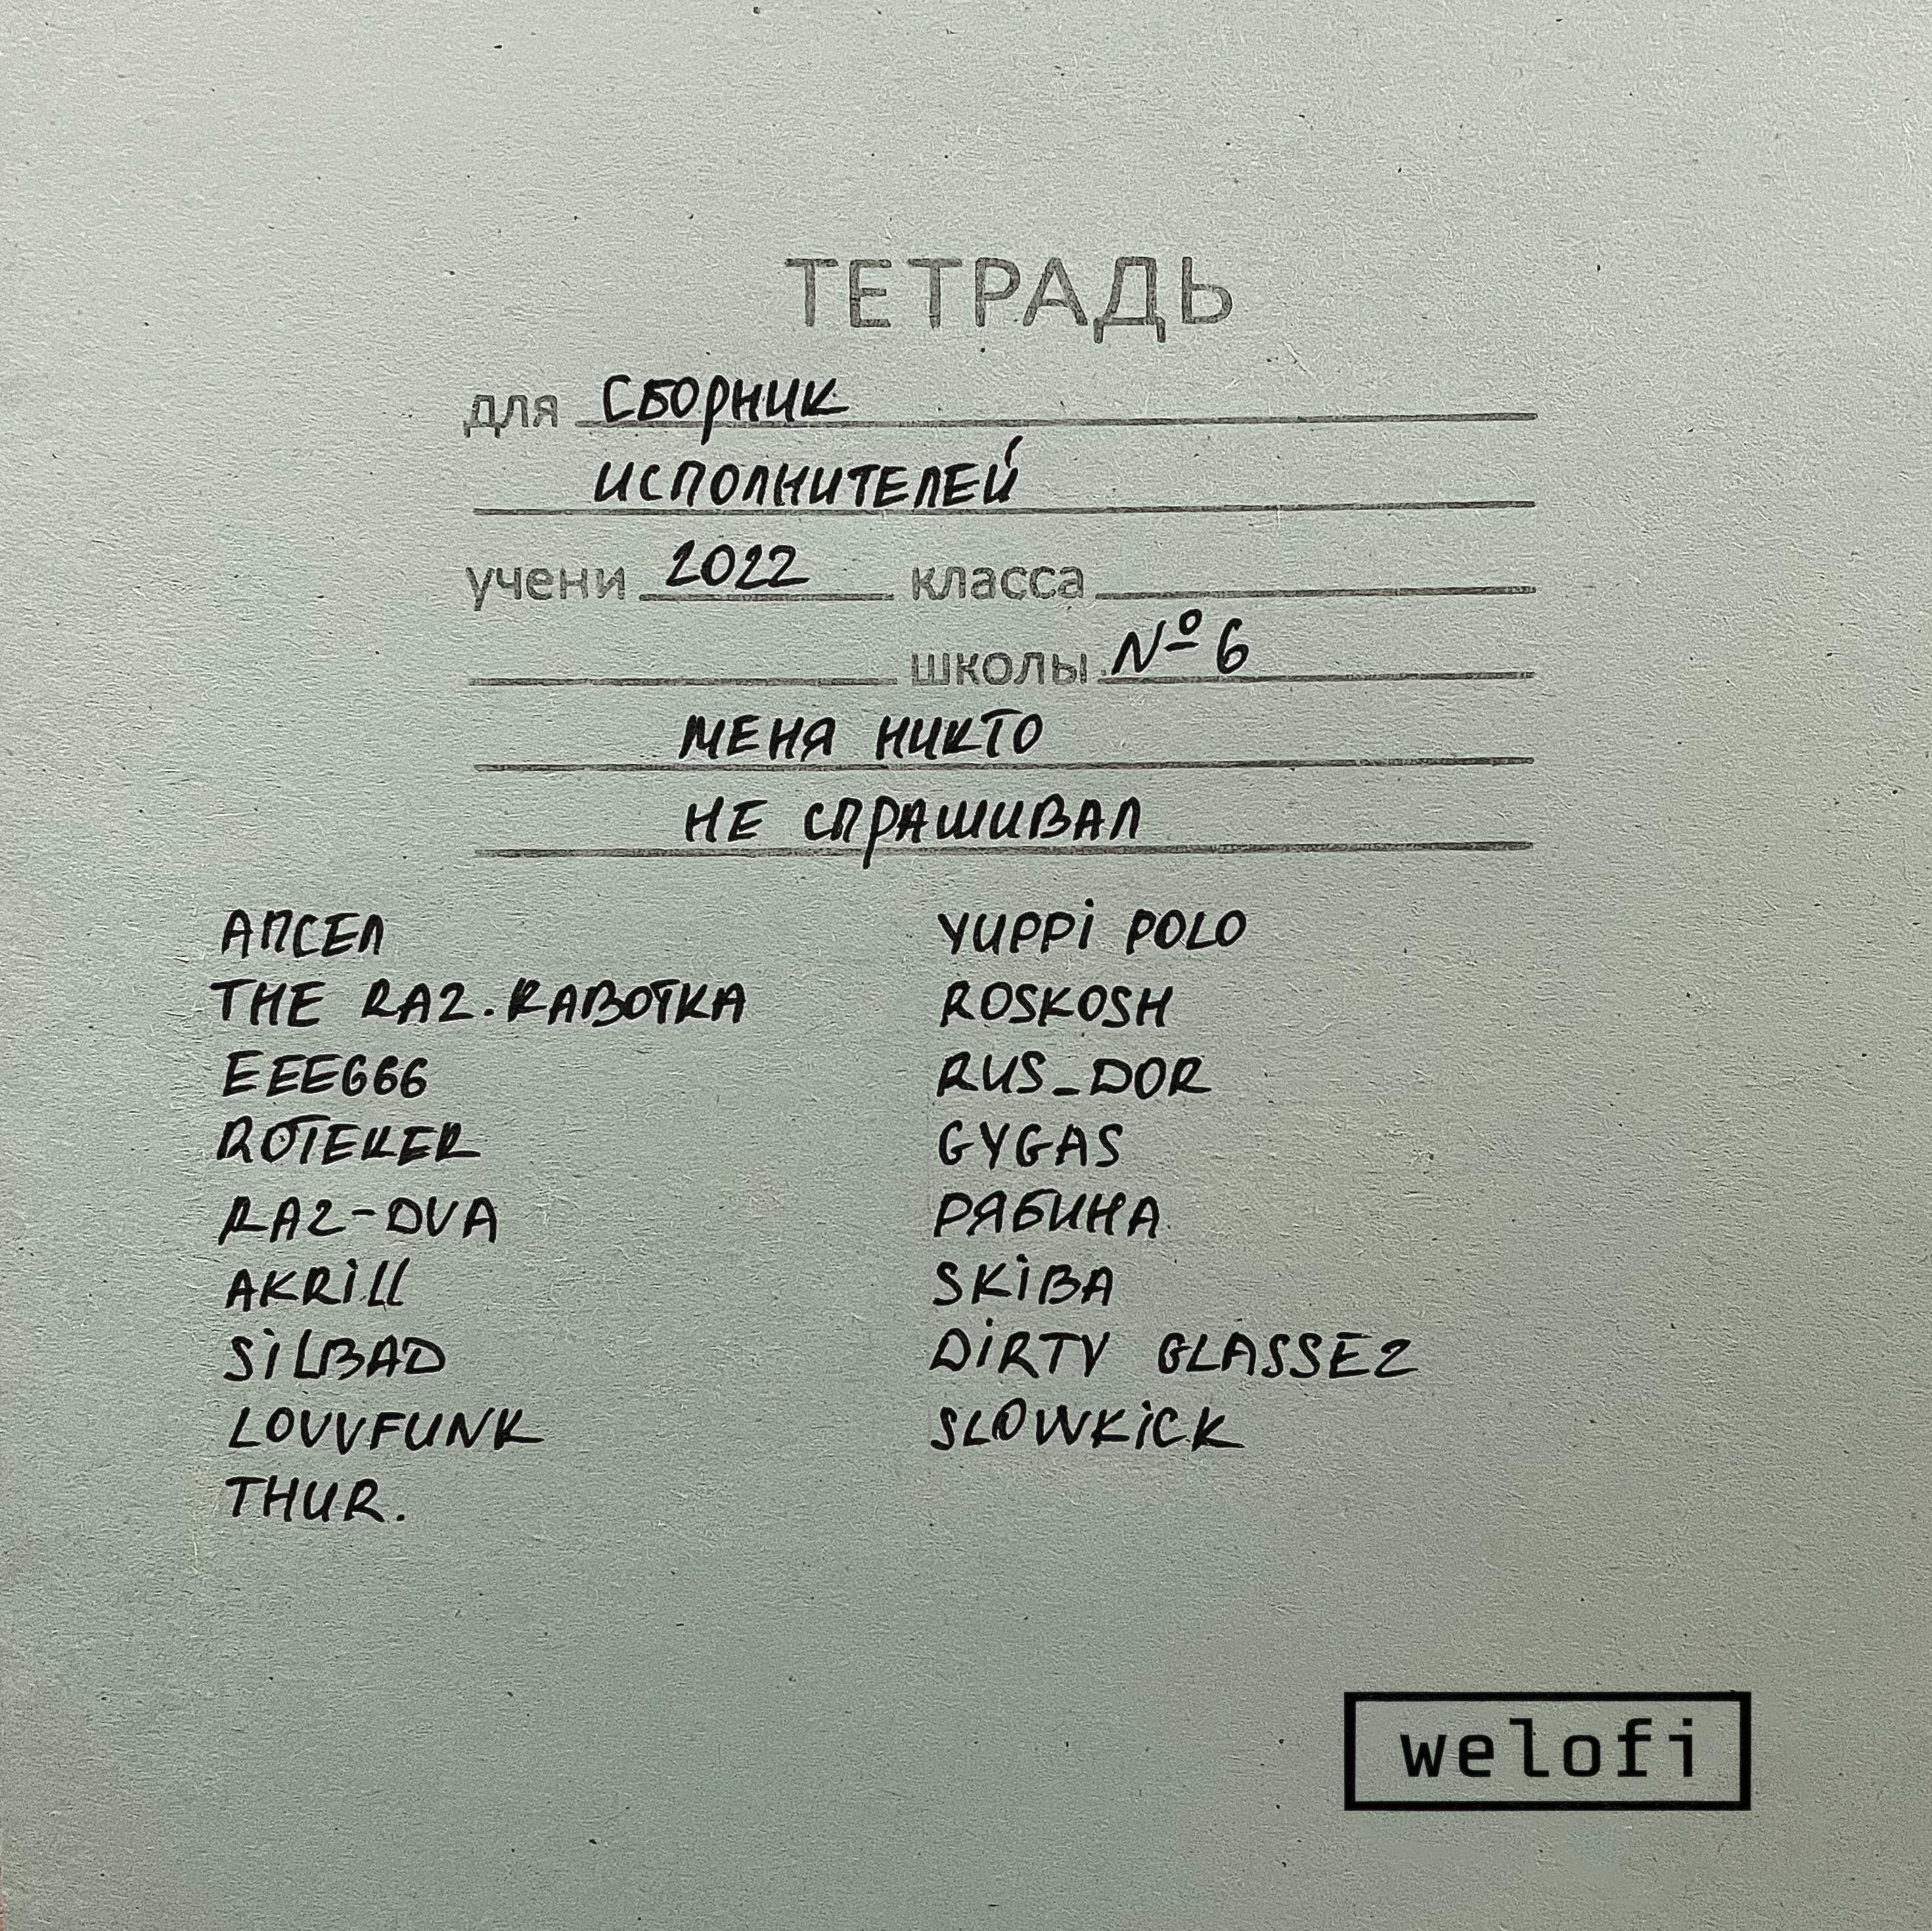 ТЕТРАДЬ
для СБОРНИК
ИСПОЛНИТЕЛЕЙ
учени 2022 класса
школы №6
МЕНЯ НИКТО
НЕ СПРАШИВАЛ
АПСЕЛ
THE RAZ.RABOTKA
EEE666
ROTEKER
RAZ-DVA
AKRiLL
SiLBAD
LOVVFUNK
THUR.
YUPPi POLO
ROSKOSH
RUS_DOR
GYGAS
РЯБИНА
SKiBA
DiRTY GLASSEZ
SLOWKiCK
welofi